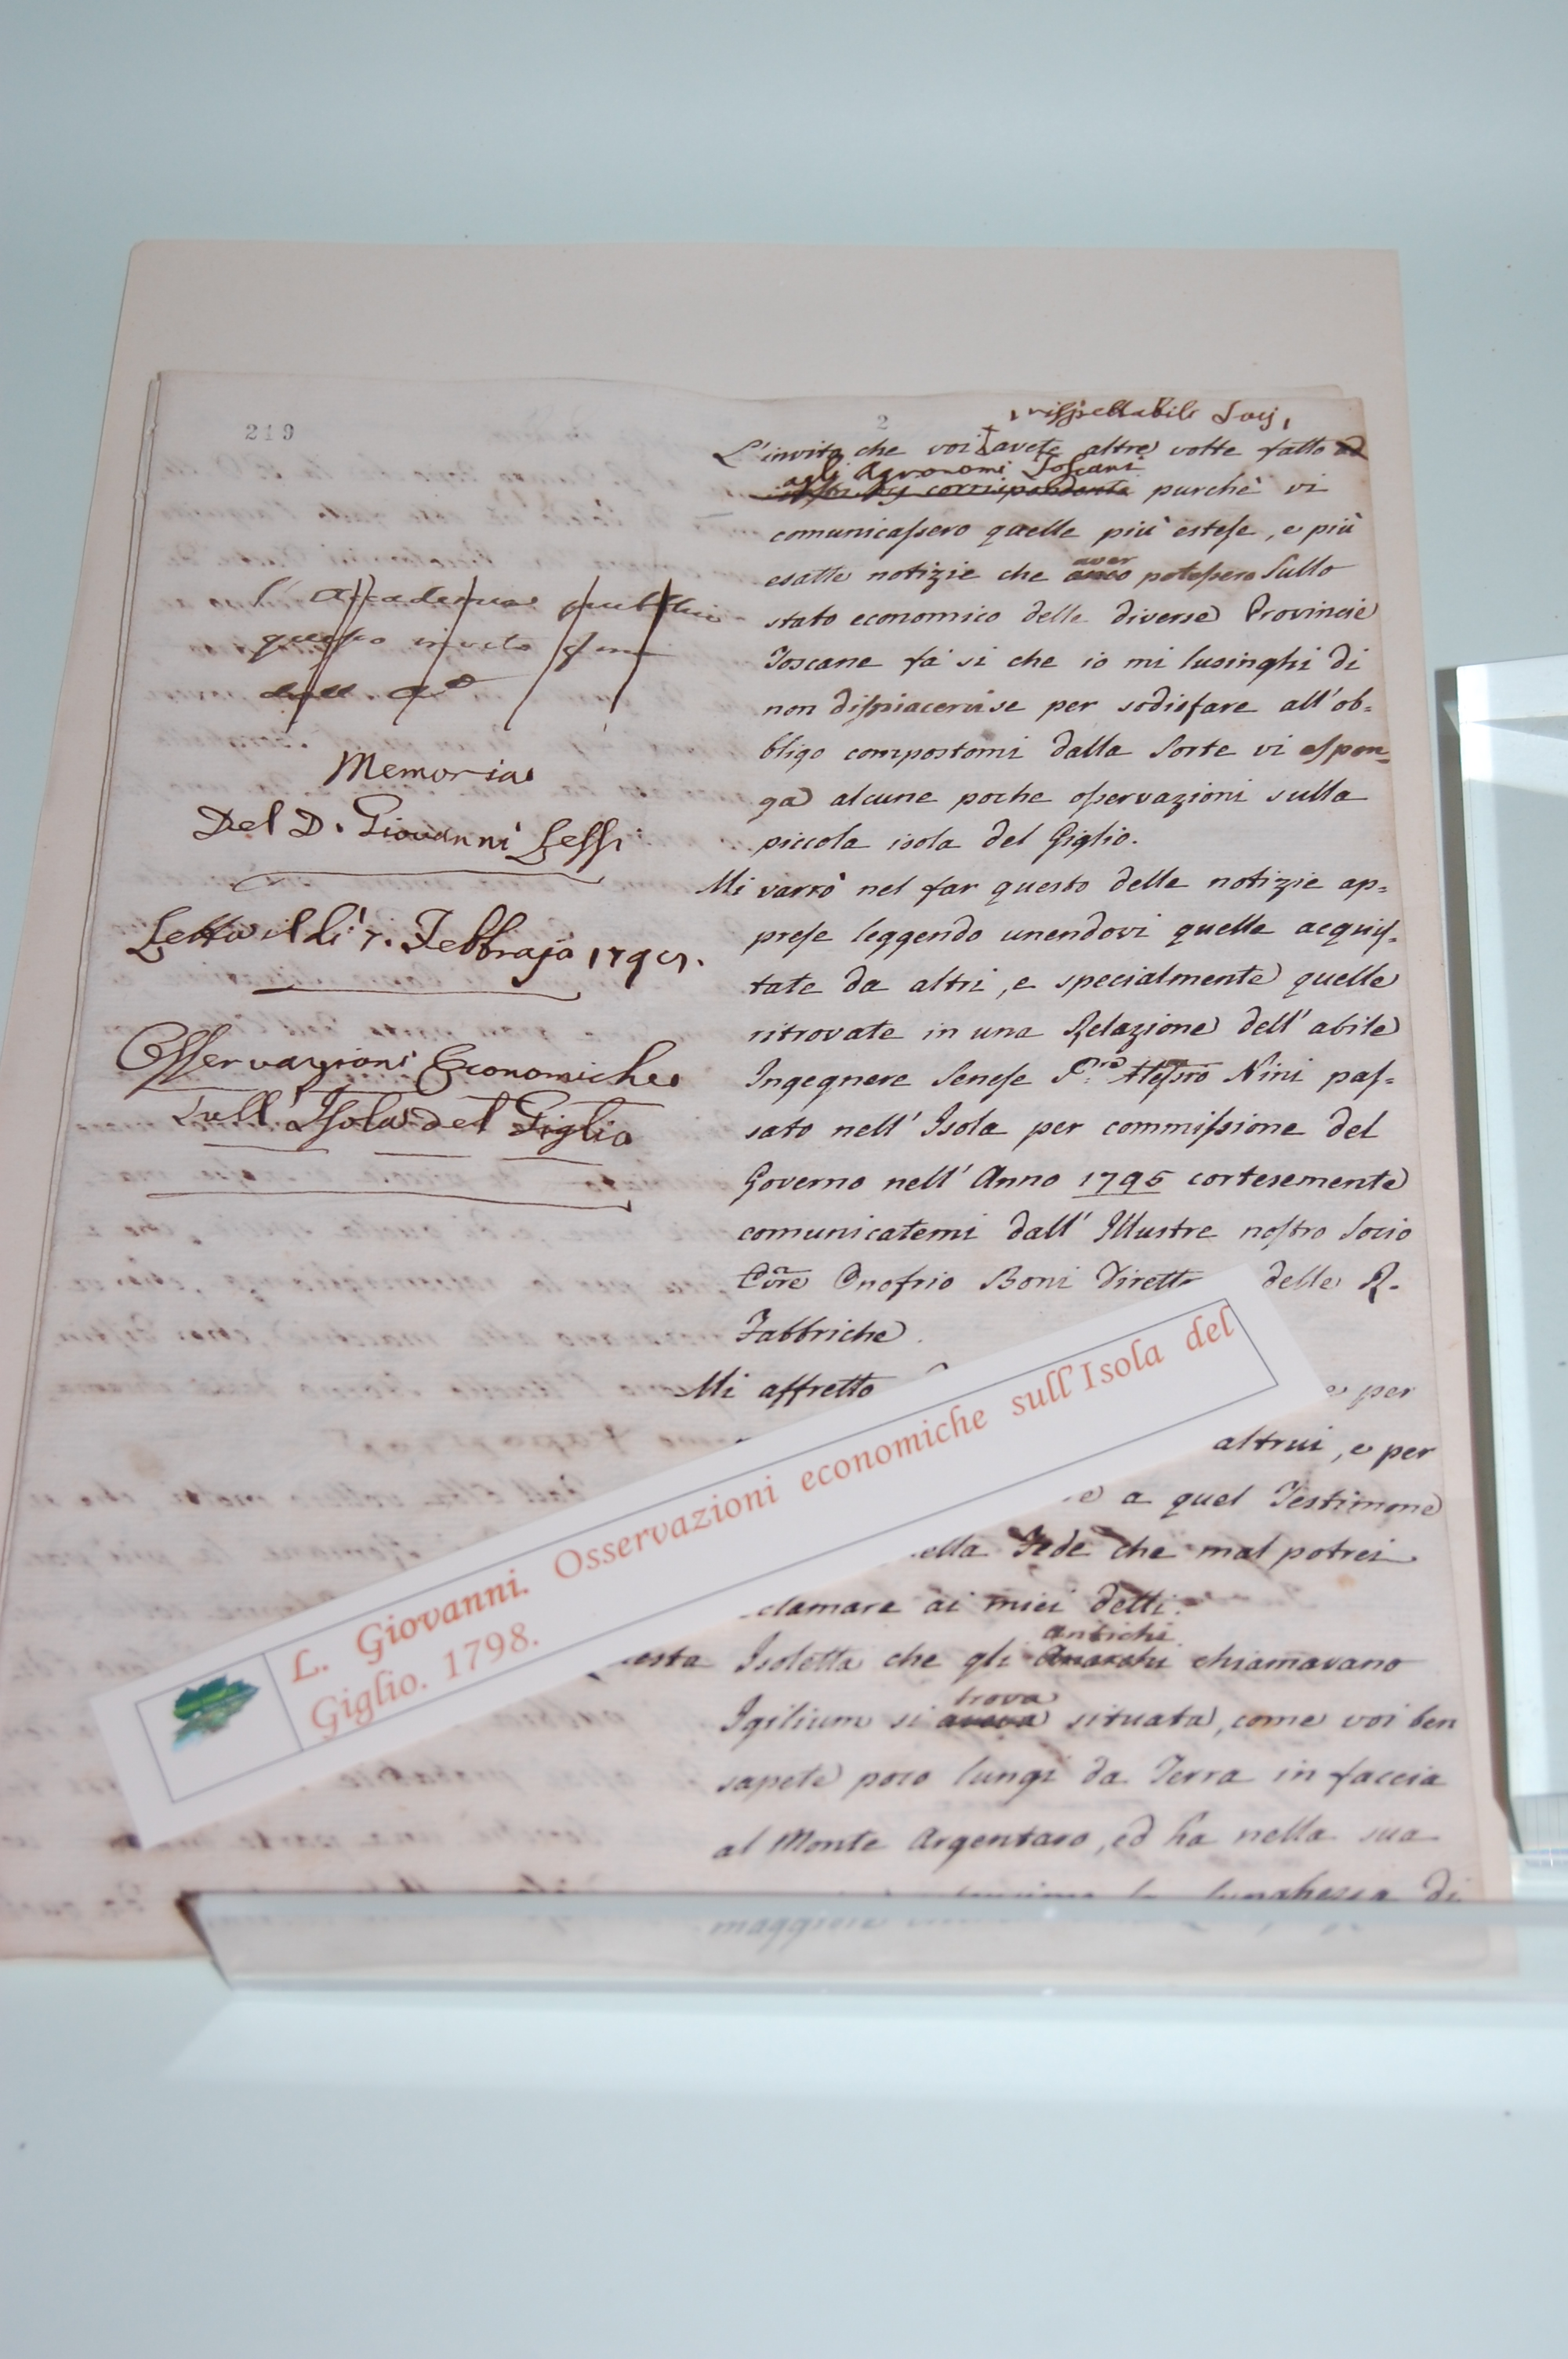 219
Memoria
Del D. Giovanni Lessi
Letta il dì 7. Febbrajo
Osservazioni Economiche
sull' Isola del Giglio
2
rispettabili Socj,
L'invito che voi avete altre volte fatto
agli Agronomi Toscani
corrispondenti purchè vi
comunicassero quelle più estese, e più
aver
esatte notizie che potessero sullo
stato economico delle diverse Provincie
Toscane fa si che io mi lusinghi di
non dispiacervi se per sodisfare all'ob=
bligo compostomi dalla sorte vi espon=
ga alcune poche osservazioni sulla
piccola isola del Giglio.
Mi varrò nel far questo delle notizie ap=
prese leggendo unendovi quelle acquis=
tate da altri, e specialmente quelle
ritrovate in una Relazione dell' abile
Ingegnere Senese Nini pas=
sato nell' Isola per commissione del
Governo nell' Anno 1795 cortesemente
comunicatemi dall' Illustre nostro Socio
Onofrio Boni Dirett delle R.
Fabbriche.
Mi affretto e per
altrui, e per
e a quel Testimone
ella Fede che mal potrei
clamare ai miei detti.
antichi
esta Isoletta che gli chiamavano
trova
Igilium si situata, come voi ben
sapete poco lungi da Terra in faccia
al Monte Argentaro, ed ha nella sua
lunghezza di
maggiore
L. Giovanni. Osservazioni economiche sull'Isola del
Giglio. 1798.